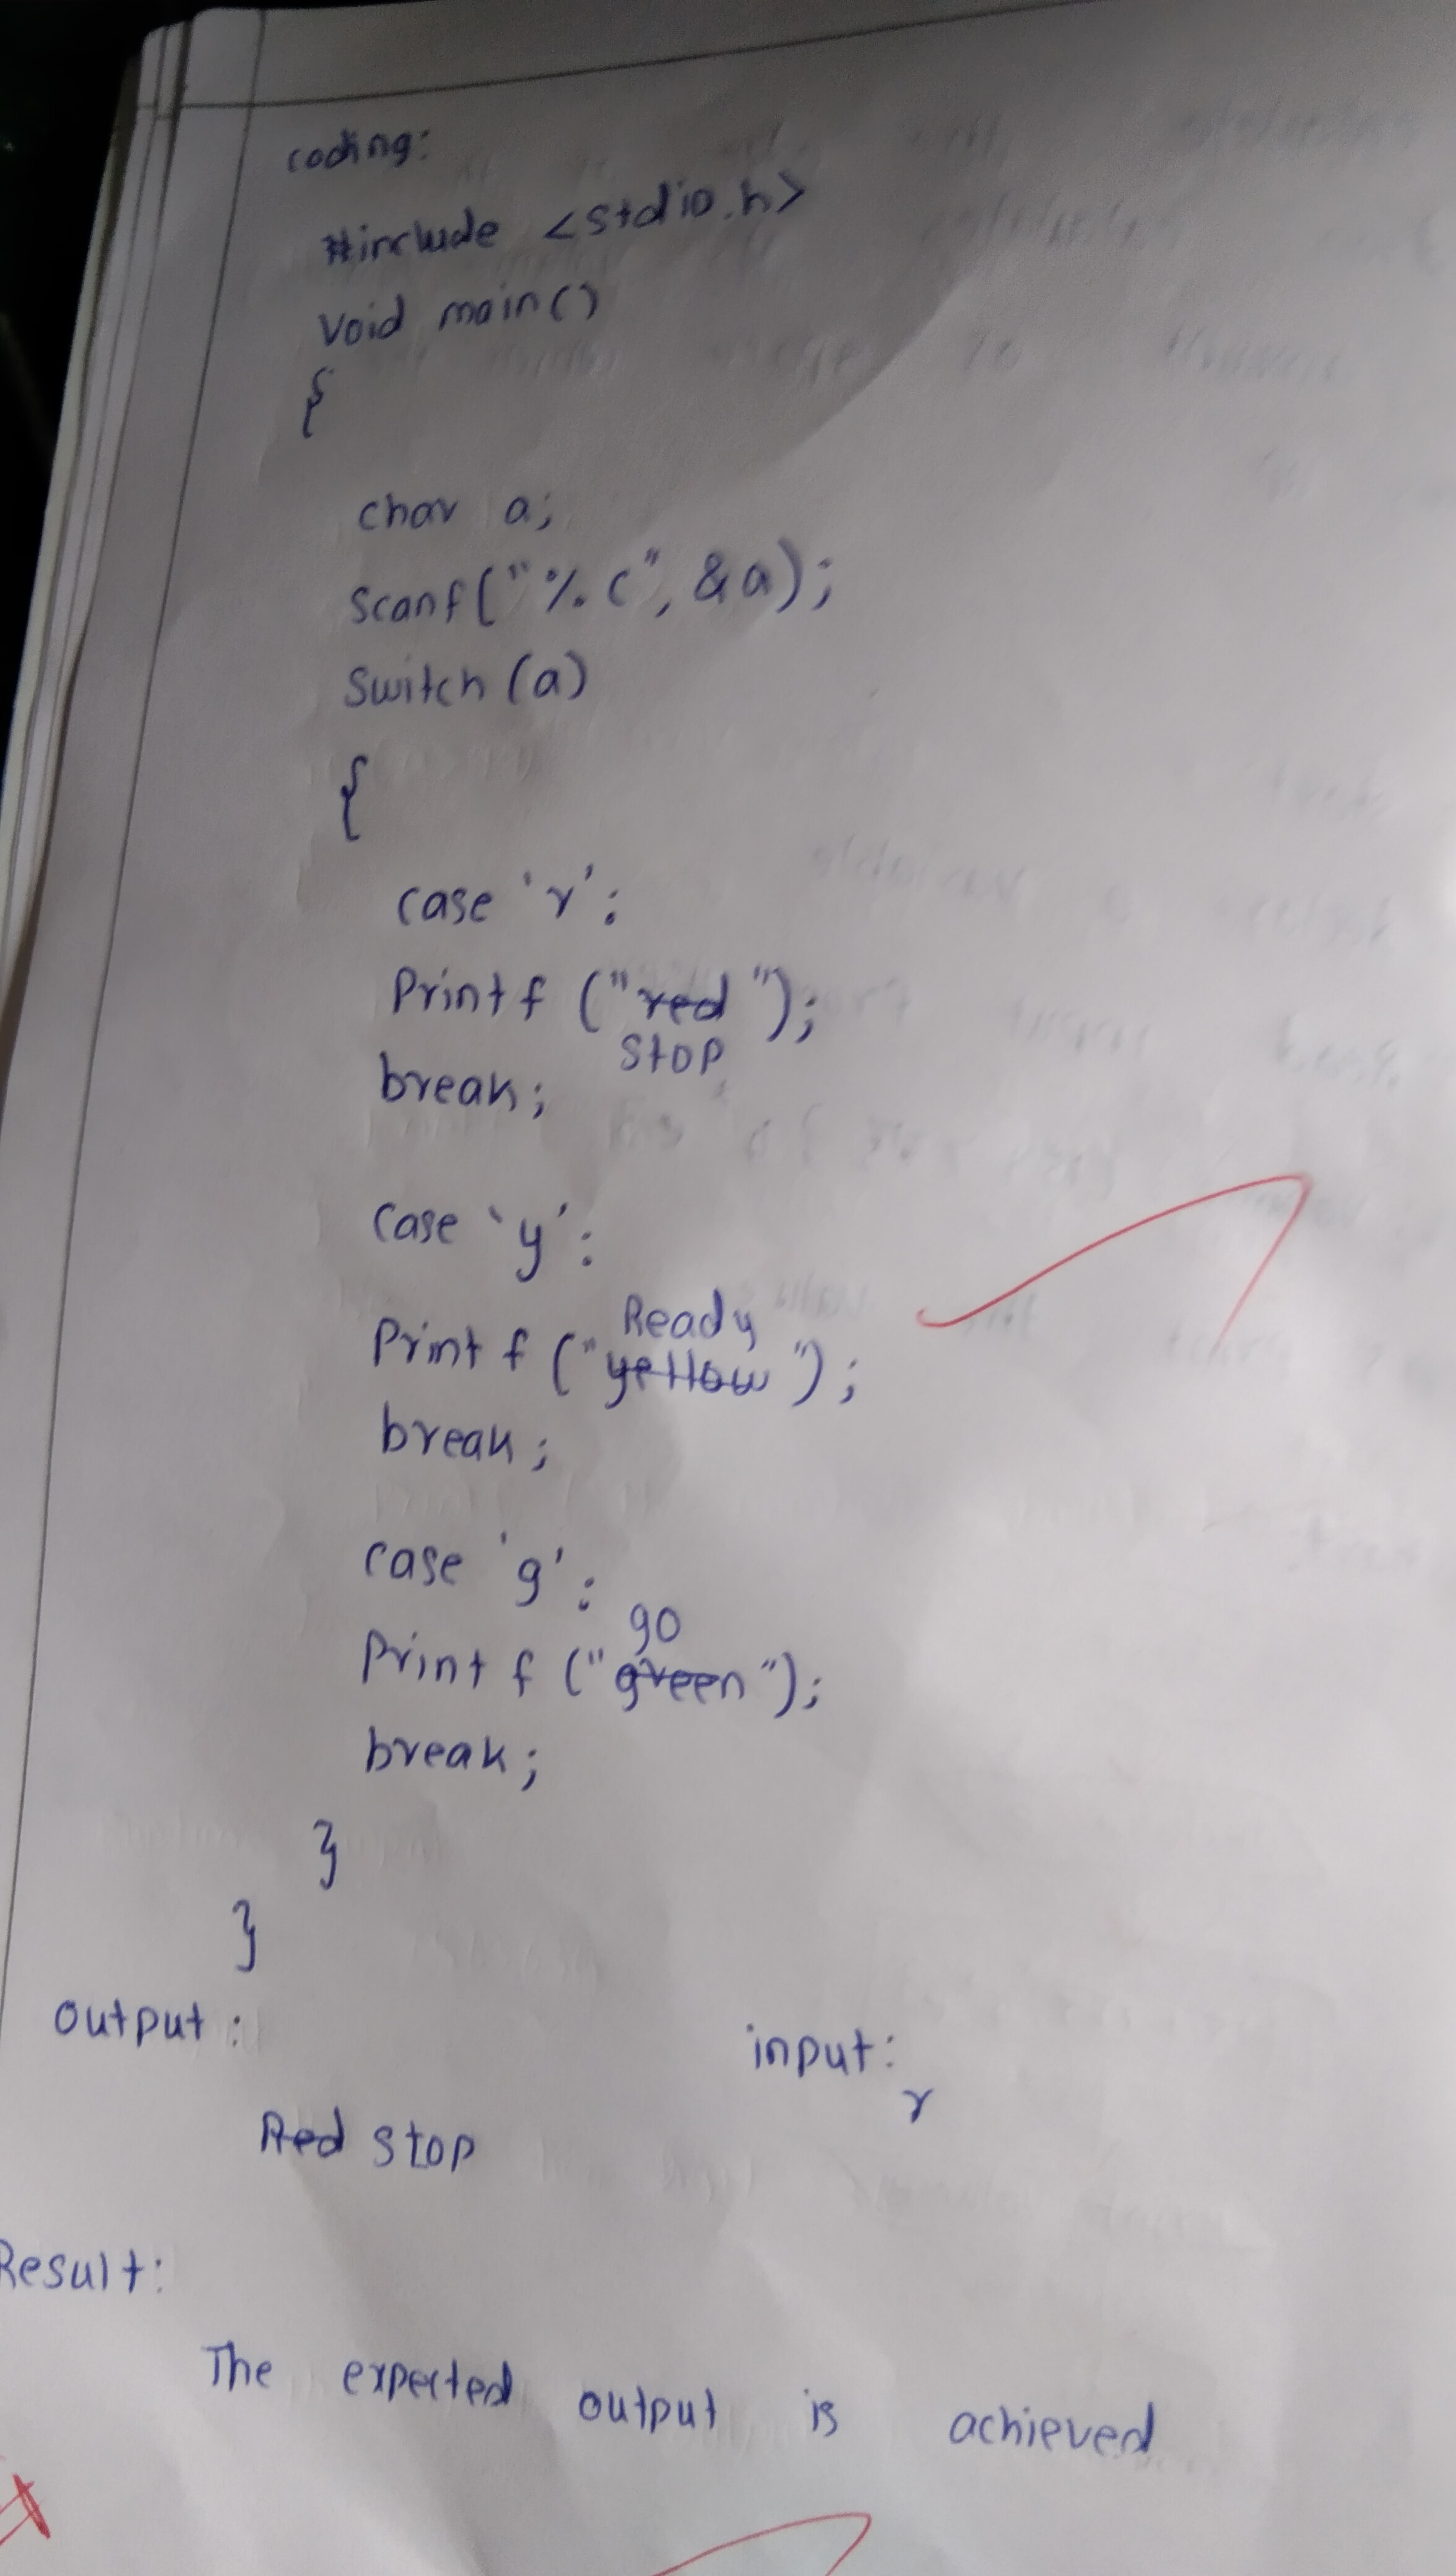 coding:
#include <stdio.h>
void main()
{
char a;
scanf("%c", &a);
switch (a)
{
case 'r':
Printf ("red");
stop
break;
case 'y':
Ready
Printf ("yellow");
break;
case 'g':
go
Printf ("green");
break;
}
}
output:
input:
r
Red stop
Result:
The expected output is achieved